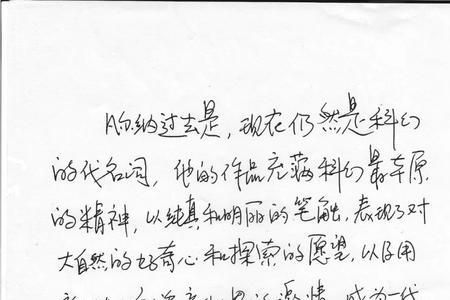 凡尔纳过去是，现在仍然是科幻
的代名词，他的作品充满科幻最本原
的精神，以纯真和明丽的笔触，表现了对
大自然的好奇心和探索的愿望，以及用
激情，成为一代